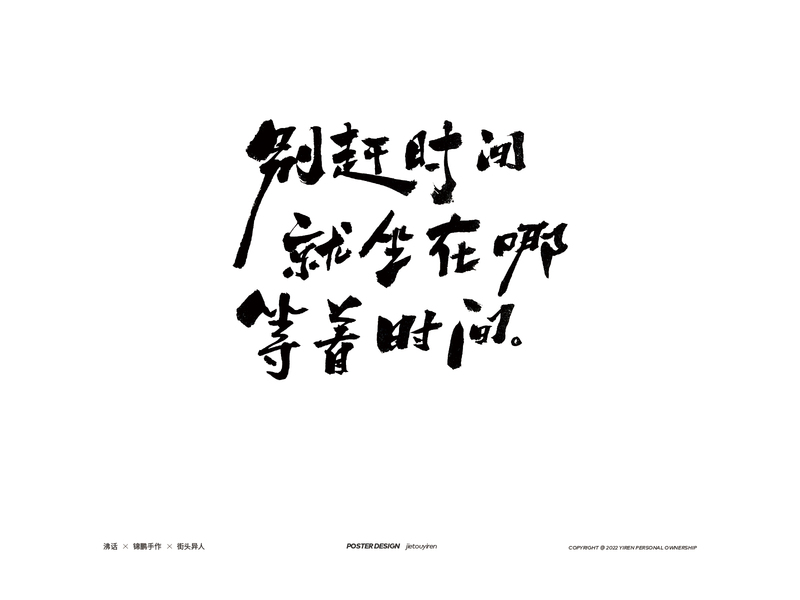 别赶时间
就坐在哪
等着时间。
沸话 × 锦鹏手作 × 街头异人
POSTER DESIGN jietouyiren
COPYRIGHT @ 2022 YIREN PERSONAL OWNERSHIP